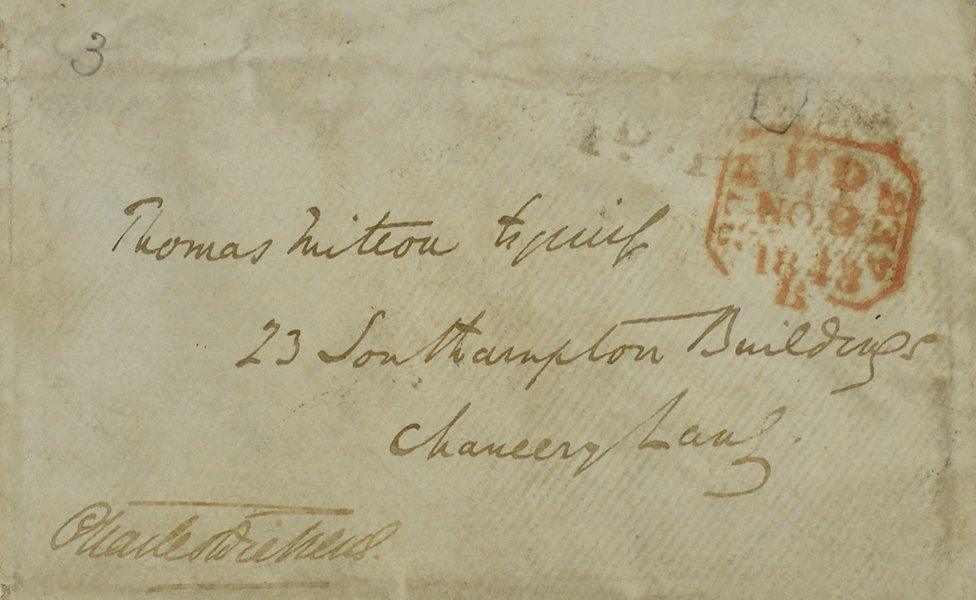 3
P D
NO 2
1843
B
Thomas Mitton Esquire
23 Southampton Buildings
Chancery Lane.
Charles Dickens